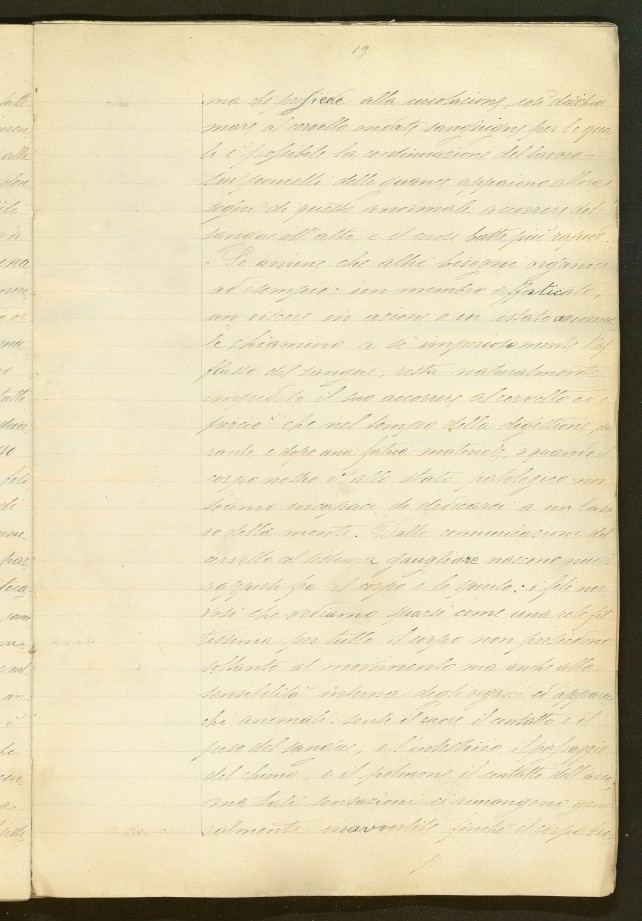 19
ma che presiede alla circolazione, così da chia
mare al cervello ondate sanguigne per le qua
li è possibile la continuazione del lavoro—
Sui pomelli delle guance appaiono allora i
segni di questo anormale accorrere del
sangue all'alto e il cuore batte più rapido.
- Se avviene che altri bisogni organici
ad esempio: un membro affaticato,
un viscere in azione o in istato anorma
le chiamino a sé imperiosamente l'af
flusso del sangue, resta naturalmente
impedito il suo accorrere al cervello ed è
perciò che nel tempo della digestione, du
rante e dopo una fatica materiale, e quando il
corpo nostro è allo stato patologico noi
siamo incapaci di dedicarci a un lavo
ro della mente. Dalle comunicazioni del
cervello al sistema gangliare nascono nuovi
rapporti fra il corpo e lo spirito: i fili ner
vosi che vediamo sparsi come una rete fit
tissima per tutto il corpo non presiedono
soltanto al movimento ma anche alla
sensibilità interna degli organi ed apparec
chi animali: sente il cuore il contatto e il
peso del sangue, e l'intestino il passaggio
del chimo, e il polmone il contatto dell'aria;
ma tali sensazioni ci rimangono gene
ralmente inavvertite finché il corpo tro